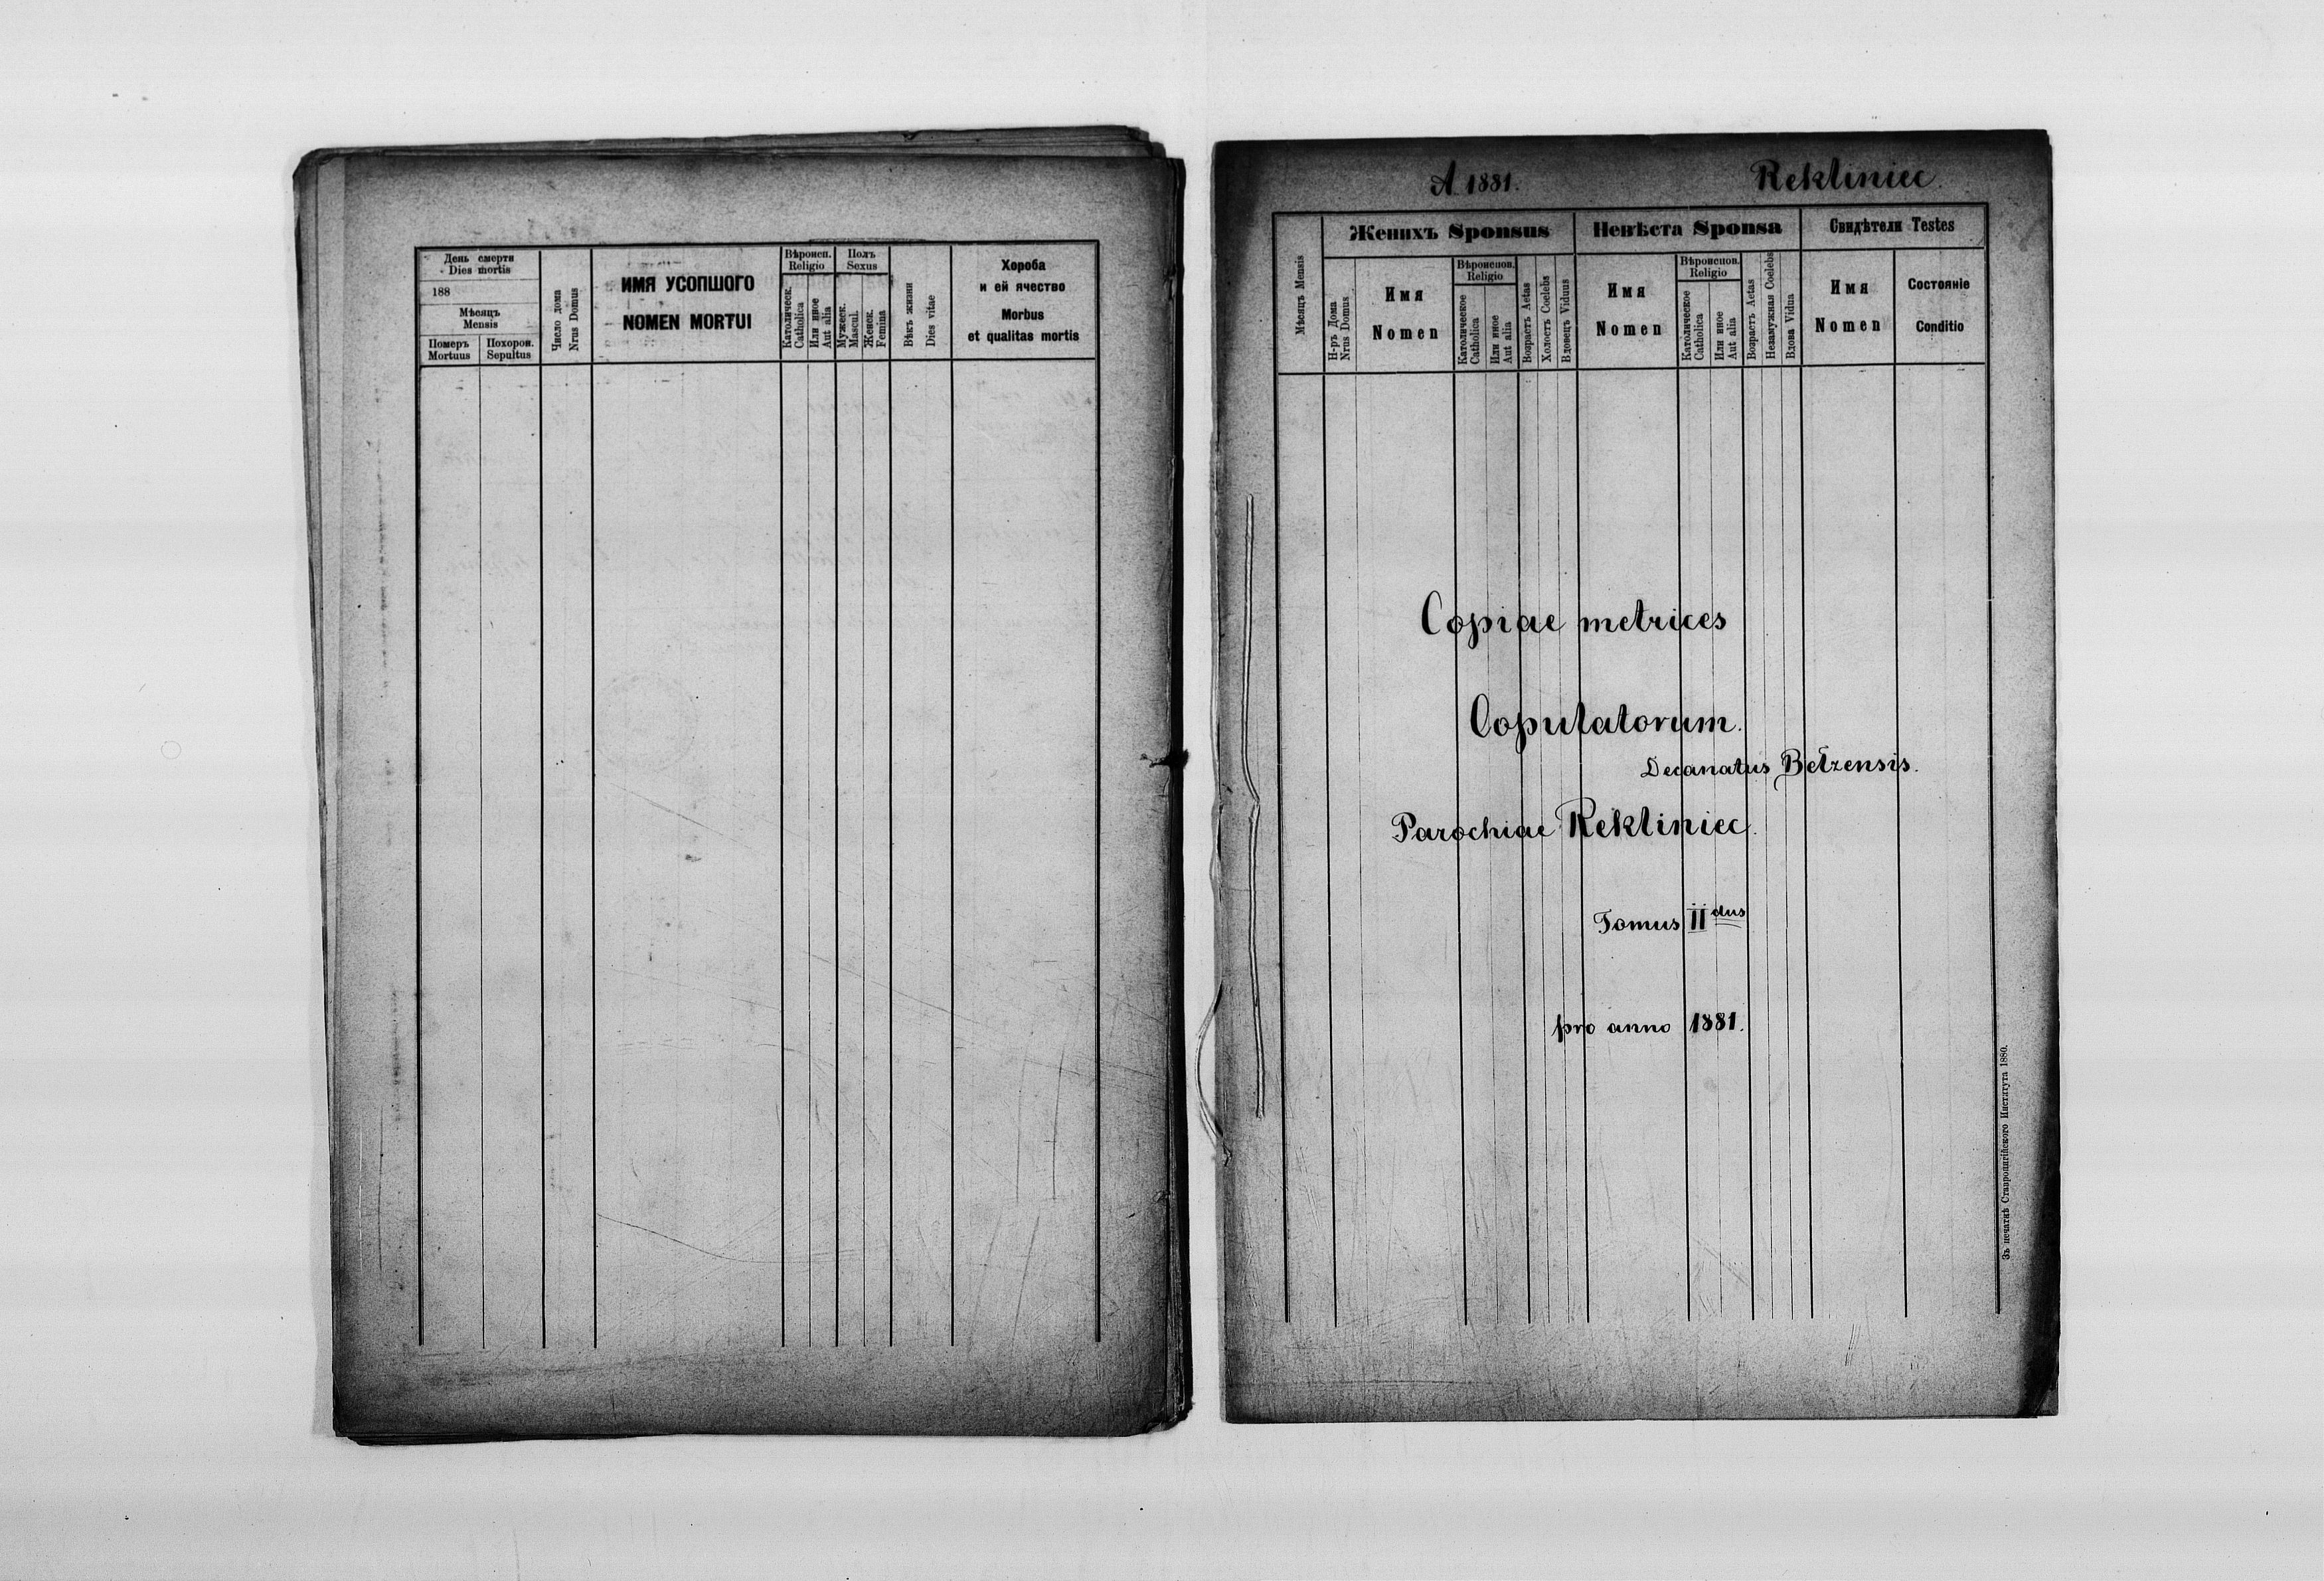 День смерти
Dies mortis
188
Мѣсяцъ
Mensis
Померъ
Mortuus
Похорон.
Sepultus
Число дома
Nrus Domus
ИМЯ УСОПШОГО
NOMEN MORTUI
Вѣроисп.
Religio
Католическ.
Catholica
Или иное
Aut alia
Полъ
Sexus
Мужеск.
Mascul.
Женск.
Femina
Вѣкъ жизни
Dies vitae
Хороба
и ей ячество
Morbus
et qualitas mortis
A 1881.
Rekliniec
Мѣсяцъ Mensis
Женихъ Sponsus
Н-ръ Дома
Nrus Domus
Имя
Nomen
Вѣроиспов.
Religio
Католическое
Catholica
Или иное
Aut alia
Возрастъ Aetas
Холостъ Coelebs
Вдовецъ Viduus
Невѣста Sponsa
Имя
Nomen
Вѣроиспов.
Religio
Католическое
Catholica
Или иное
Aut alia
Возрастъ Aetas
Незамужная Coelebs
Вдова Vidua
Свидѣтели Testes
Имя
Nomen
Состояніе
Conditio
Copiae metrices
Copulatorum.
Decanatus Belzensis.
Parochiae Rekliniec.
Tomus II dus
pro anno 1881.
Зъ печатнѣ Ставропигійского Института 1880.